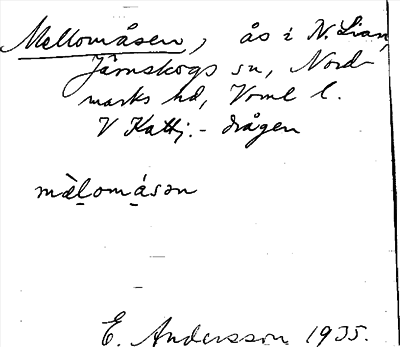 Mellomåsen, ås i N. Lian,
Järnskogs sn, Nord-
marks hd, Vrml l.
V Kattj.-drågen
mälomåson
E. Andersson 1935.